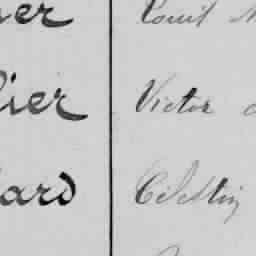 er Louis
lier Victor
ard Célestin